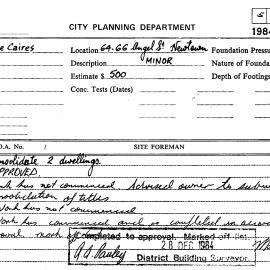 S
CITY PLANNING DEPARTMENT
1984
e Caires
Location 64-66 Angel St Newtown
Foundation Pressu
Description MINOR
Nature of Founda
Estimate $ 500
Depth of Footings
Conc. Tests (Dates)
D.A. No.
SITE FOREMAN
nsolidate 2 dwellings
PPROVED.
k has not commenced Advised owner to subm
nsolidation of titles
Work has not commenced
Work has commenced and is completed in accor
oval. mark off
Completed to approval. Marked off Ret.
28 DEC 1984
District Building Surveyor.